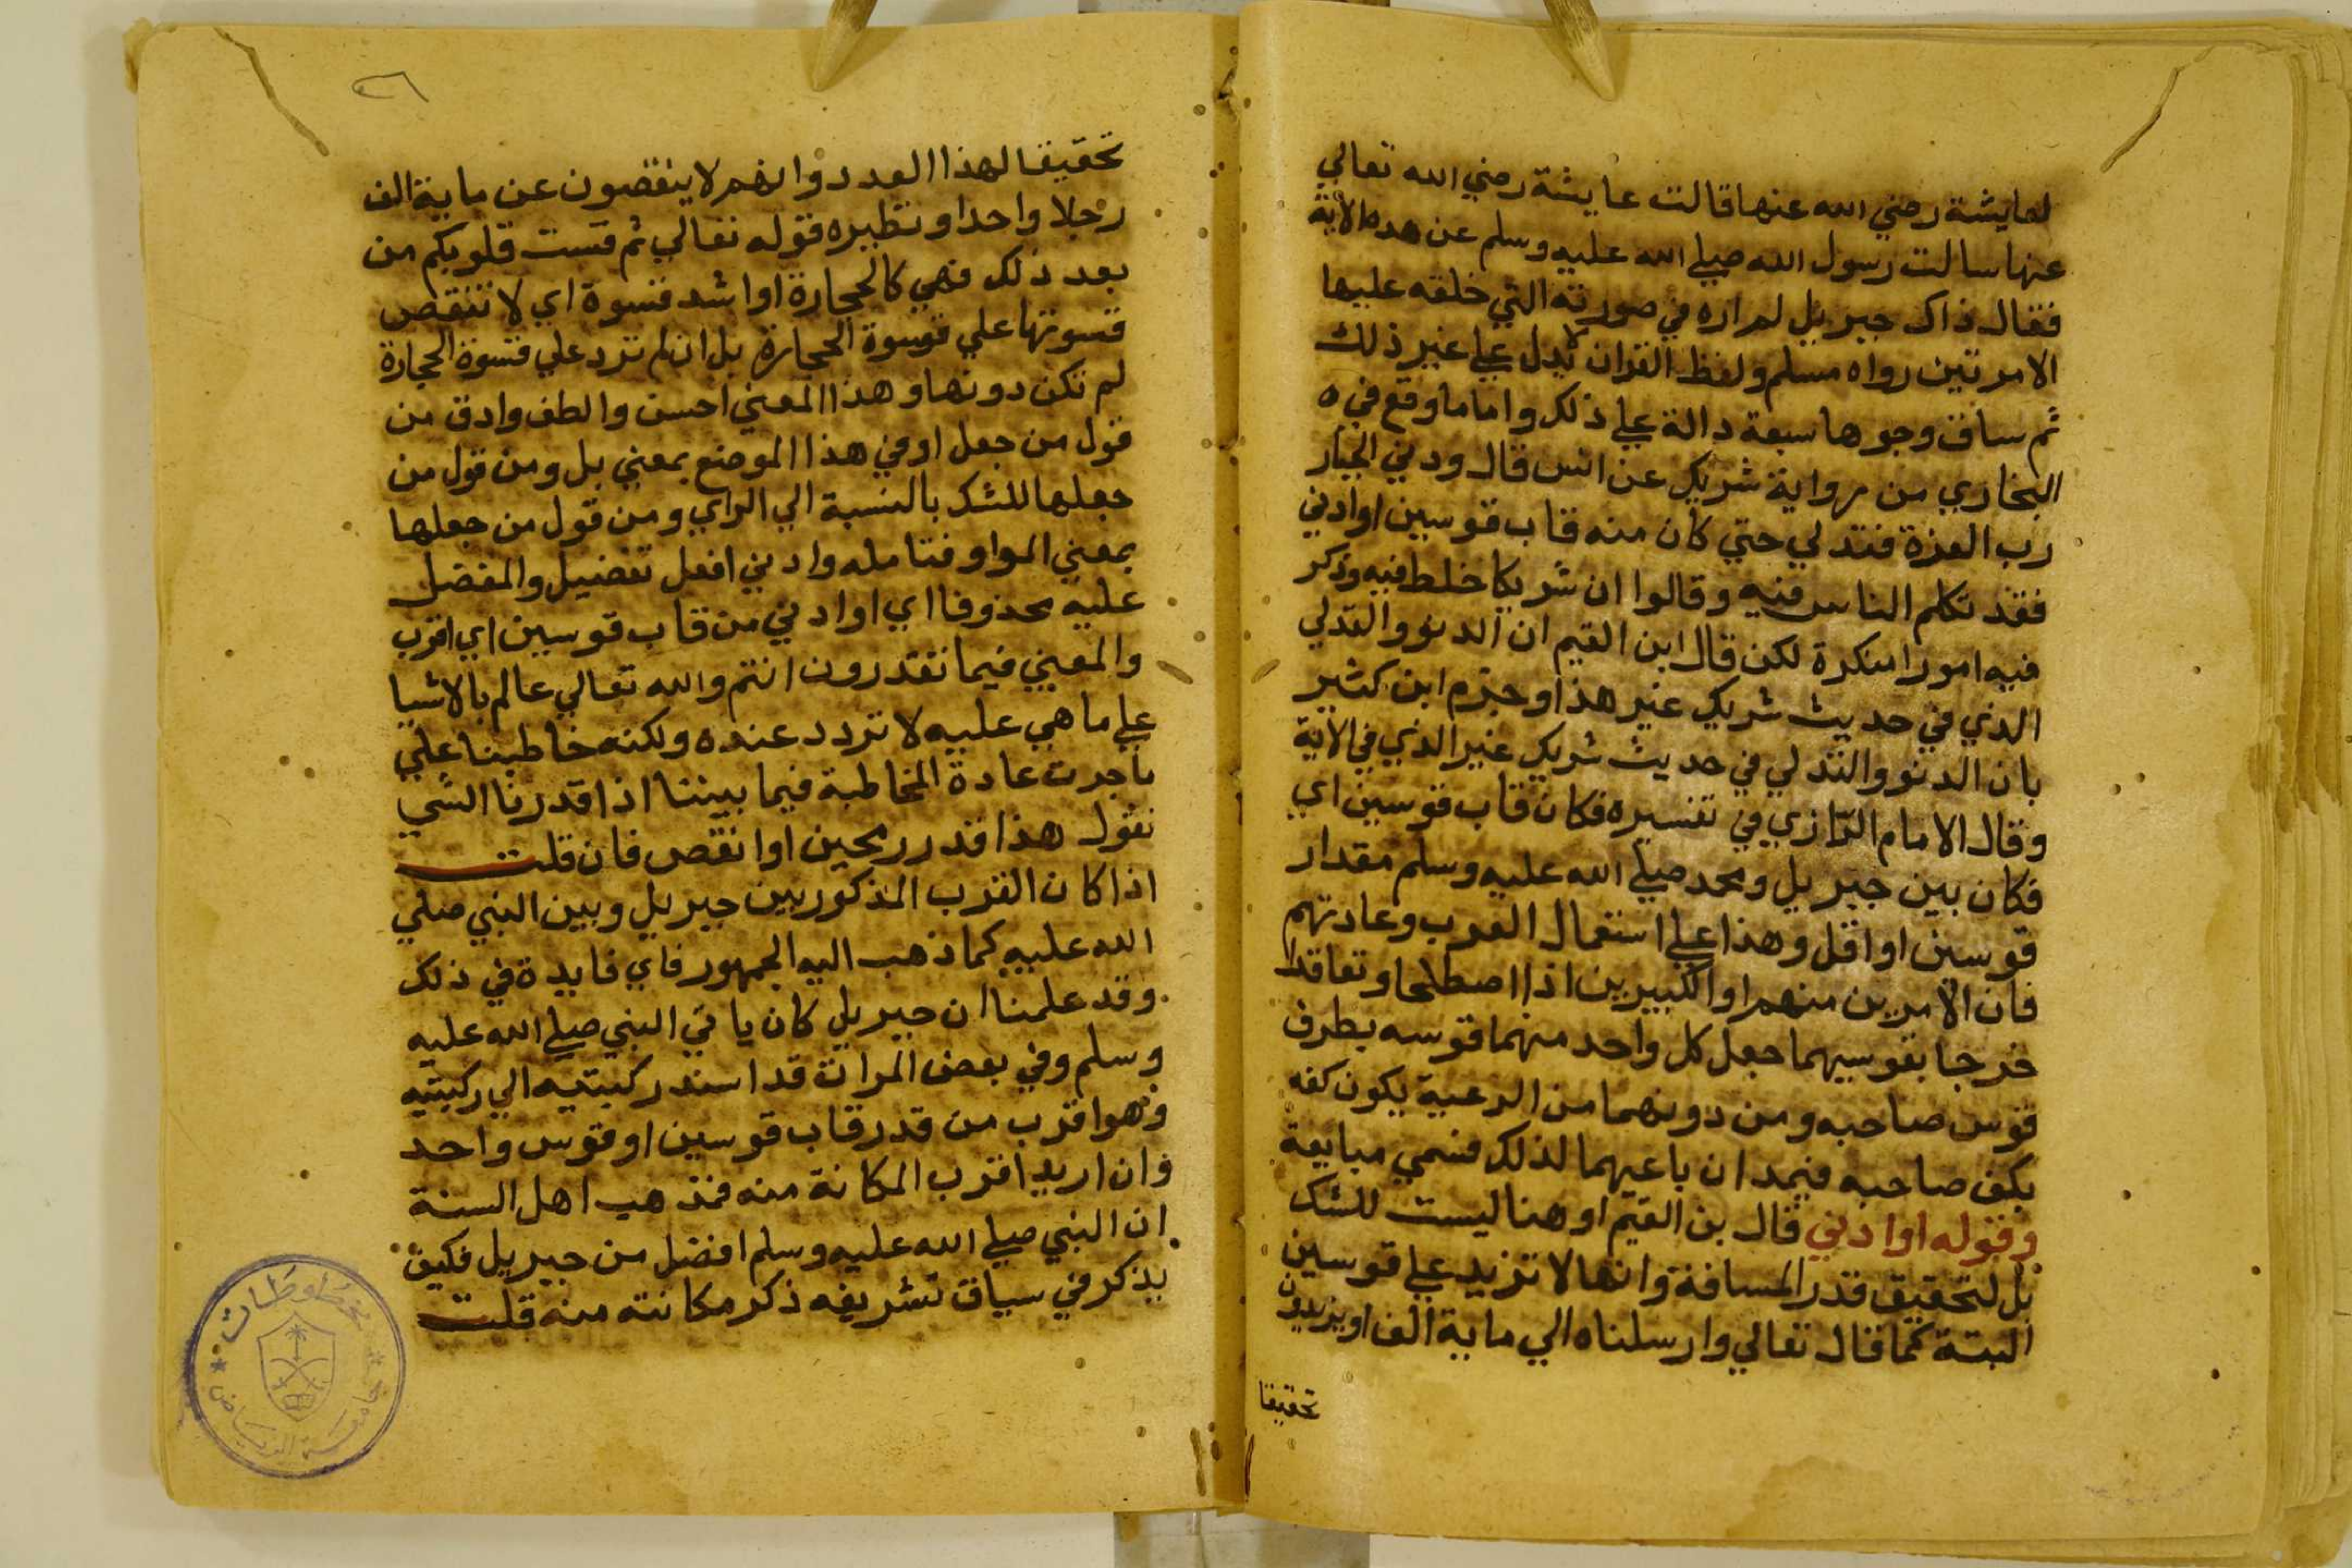 لعايشة رضي الله عنها قالت عايشة رضي الله تعالي
عنها سالت رسول الله صلي الله عليه وسلم عن هذه الاية
فقال ذاك جبريل لم اره في صورته التي خلقه عليها
الا مرتين رواه مسلم ولفظ القران لا يدل علي غير ذلك
ثم ساق وجوها سبعة دالة علي ذلك واما ما وقع في ه
البخاري من رواية شريك عن انس قال ودني الجبار
رب العزة فتدلي حتي كان منه قاب قوسين او ادني
فقد تكلم الناس فيه وقالوا ان شريكا خلط فيه وذكر
فيه امورا منكرة لكن قال ابن القيم ان الدنو والتدلي
الذي في حديث شريك غير هذا وجزم ابن كثير
بان الدنو والتدلي في حديث شريك غير الذي في الاية
وقال الامام الرازي في تفسيره فكان قاب قوسين اي
فكان بين جبريل ومحمد صلي الله عليه وسلم مقدار
قوسين او اقل وهذا علي استعمال العرب وعادتهم
فان الامرين منهم او الكبيرين اذا اصطلحا وتعاقدا
خرجا بقوسيهما جعل كل واحد منهما قوسه بطرف
قوس صاحبه ومن دونهما من الرعية يكون كفه
بكف صاحبه فيمدان باعيهما لذلك فسمي مبايعة
وقوله او ادني قال بن القيم او هنا ليست للشك
بل لتحقيق قدر المسافة وانها لا تزيد علي قوسين
البتة كما قال تعالي وارسلناه الي ماية الف او يزيدون
تحقيقا
٢٦
تحقيقا لهذا العدد وانهم لا ينقصون عن ماية الف
رجلا واحدا ونظيره قوله تعالي ثم قست قلوبكم من
بعد ذلك فهي كالحجارة او اشد قسوة اي لا تنقص
قسوتها علي قسوة الحجارة بل ان لم تزد علي قسوة الحجارة
لم تكن دونها وهذا المعني احسن والطف وادق من
قول من جعل او في هذا الموضع بمعني بل ومن قول من
جعلها للشك بالنسبة الي الراي ومن قول من جعلها
بمعني الواو فتامله وادني افعل تفضيل والمفضل
عليه محذوفا اي او ادني من قاب قوسين اي اقرب
والمعني فيما تقدرون انتم والله تعالي عالم بالاشيا
علي ما هي عليه لا تردد عنده ولكنه خاطبنا علي
ما جرت عادة المخاطبة فيما بيننا اذا قدرنا الشي
نقول هذا قدر رمحين او انقص فان قلت
اذا كان القرب المذكور بين جبريل وبين النبي صلي
الله عليه كما ذهب اليه الجمهور فاي فايدة في ذلك
وقد علمنا ان جبريل كان ياتي النبي صلي الله عليه
وسلم وفي بعض المرات قد اسند ركبتيه الي ركبتيه
وهو اقرب من قدر قاب قوسين او قوس واحد
وان اريد اقرب المكانة منه فمذهب اهل السنة
ان النبي صلي الله عليه وسلم افضل من جبريل فكيف
يذكر في سياق تشريفه ذكر مكانته منه قلت
مخطوطات
جامعة الرياض